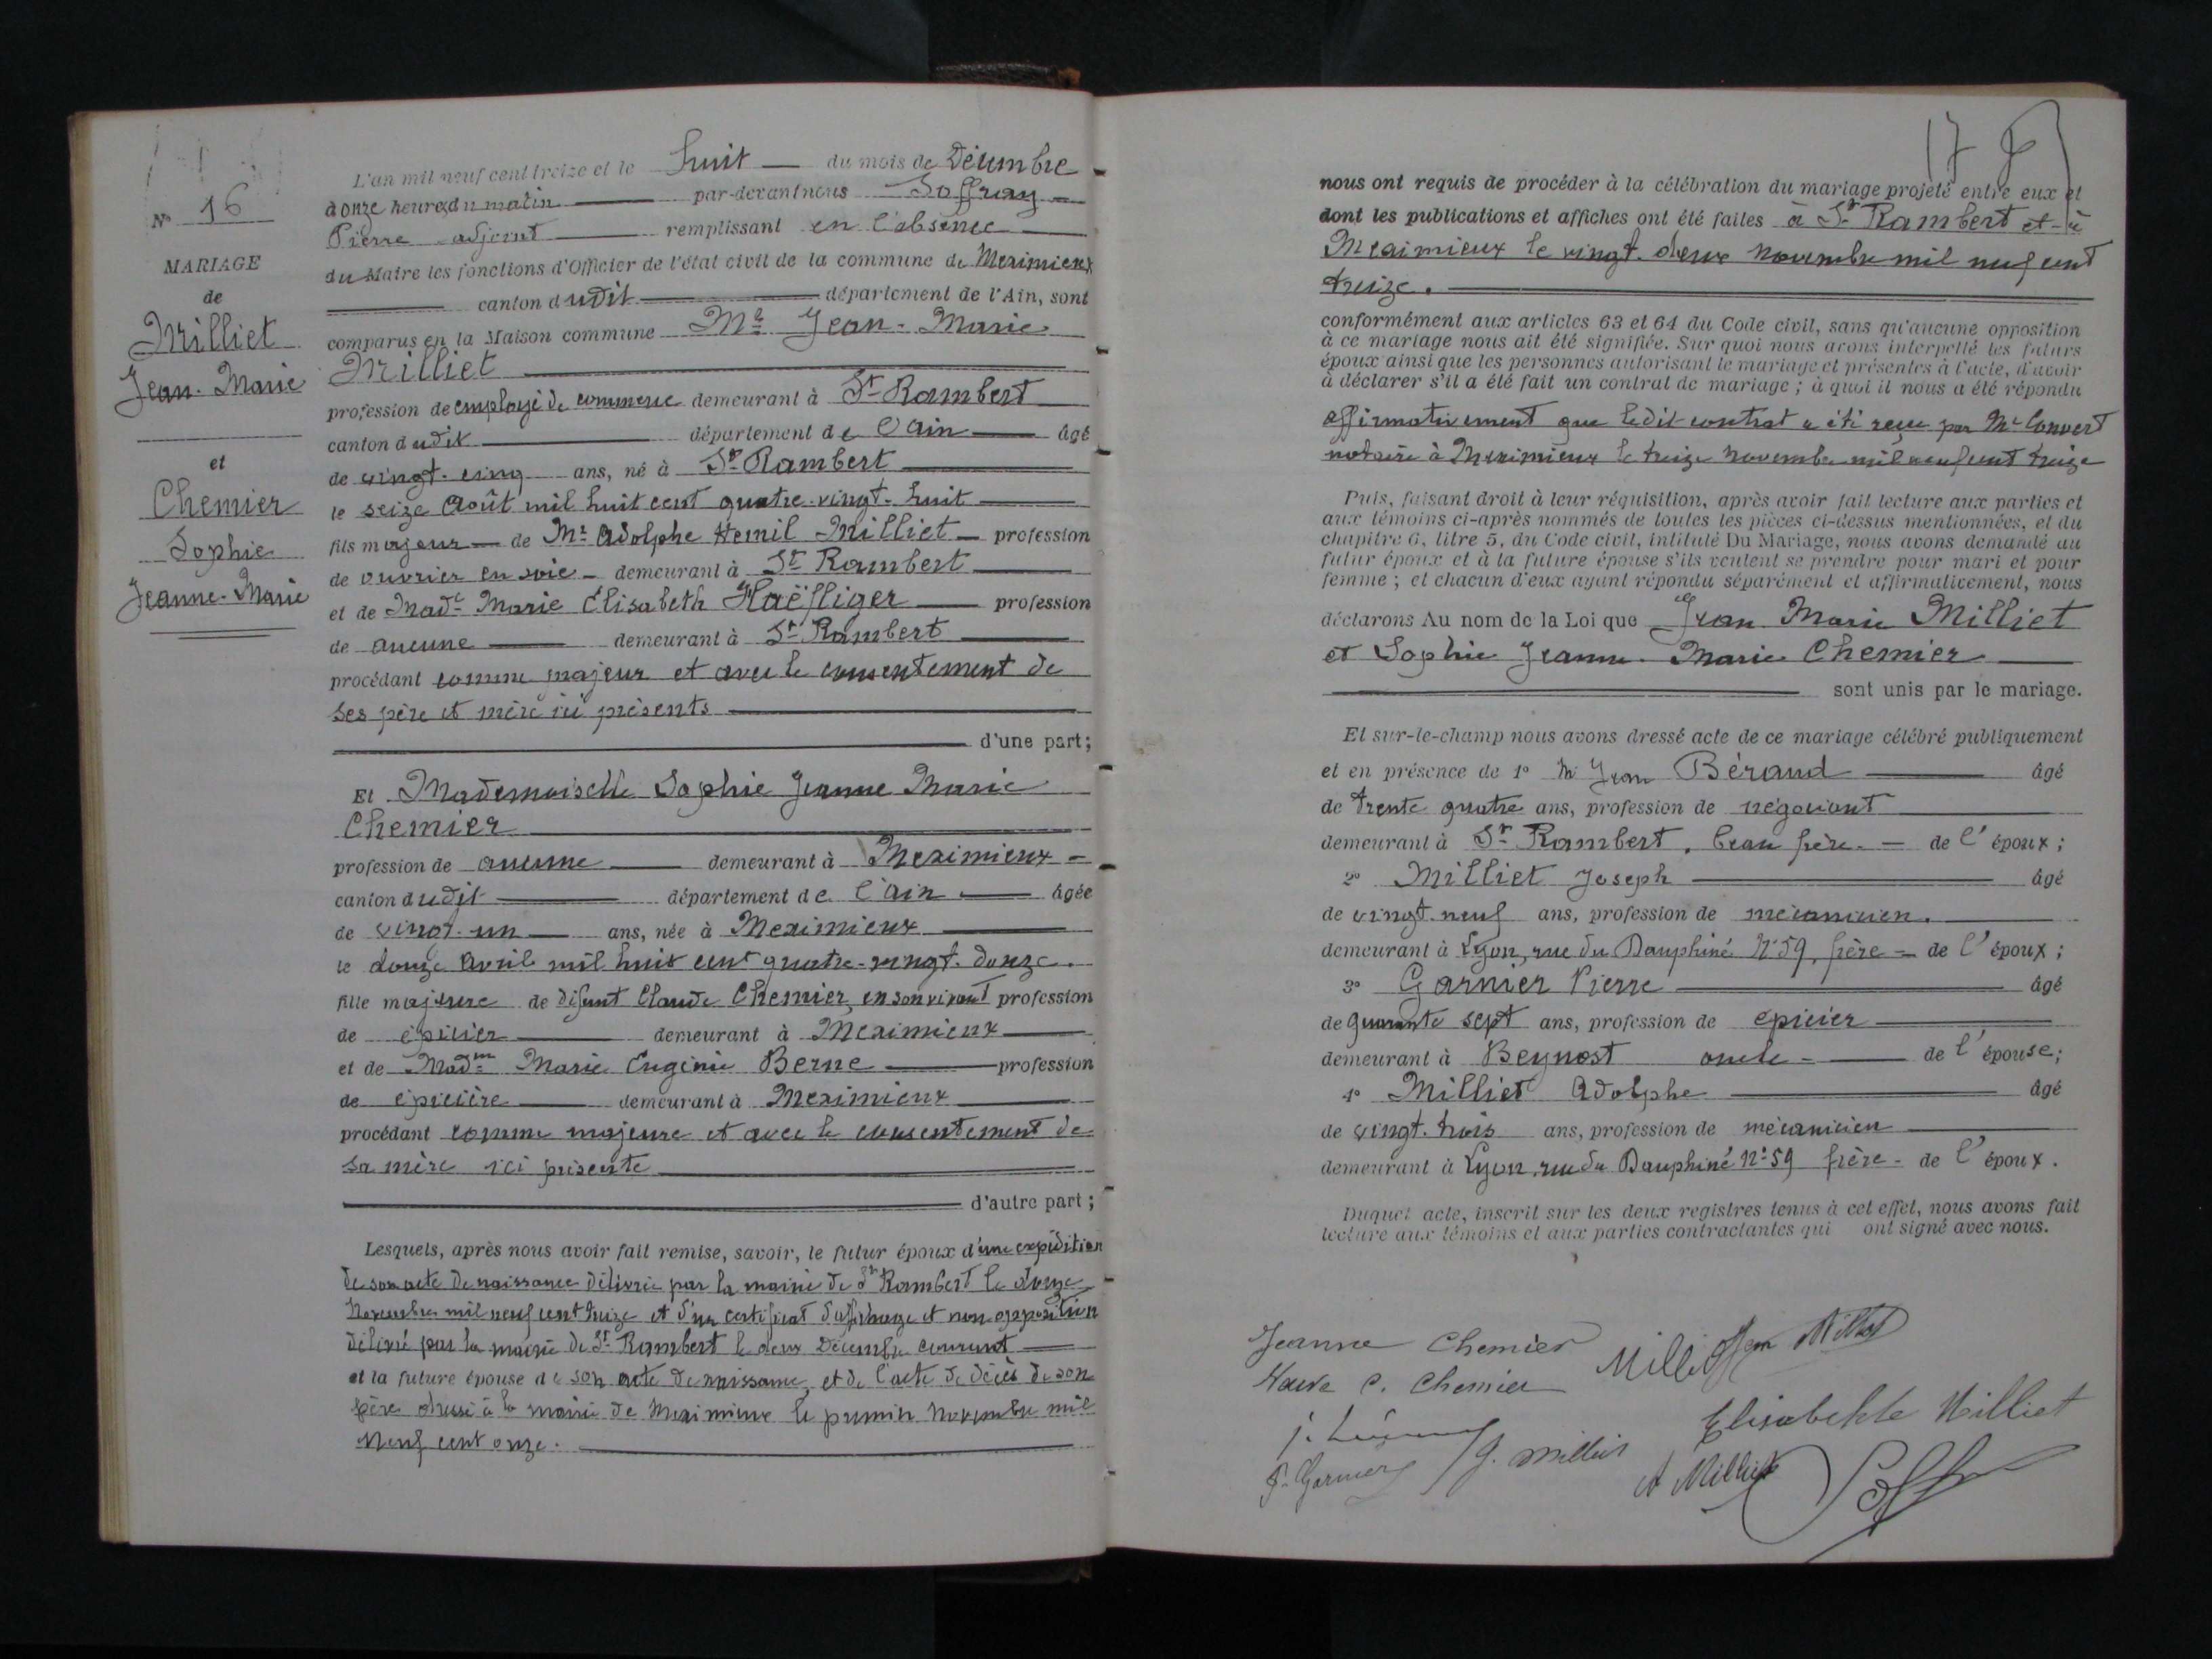 N° 16
MARIAGE
de
Milliet
Jean-Marie
et
Chemier
Sophie
Jeanne-Marie
L'an mil neuf cent treize et le huit du mois de Décembre
à onze heures du matin par-devant nous Soffray
Pierre adjoint remplissant en l'absence
du Maire les fonctions d'Officier de l'état civil de la commune de Meximieux
canton dudit département de l'Ain, sont
comparus en la Maison commune Mr Jean-Marie
Milliet
profession de employé de commerce demeurant à St Rambert
canton dudit département de l'ain âgé
de vingt-cinq ans, né à St Rambert
le seize Août mil huit cent quatre-vingt-huit
fils majeur de Mr Adolphe Hemil Milliet profession
de ouvrier en soie demeurant à St Rambert
et de Made Marie Élisabeth Haëfliger profession
de aucune demeurant à St Rambert
procédant comme majeur et avec le consentement de
ses père et mère ici présents
d'une part;
Et Mademoiselle Sophie Jeanne Marie
Chemier
profession de aucune demeurant à Meximieux
canton dudit département de l'ain âgée
de vingt-un ans, née à Meximieux
le douze Avril mil huit cent quatre-vingt-douze.
fille majeure de défunt Claude Chemier, en son vivant profession
de épicier demeurant à Meximieux
et de Madme Marie Eugénie Berne profession
de épicière demeurant à Meximieux
procédant comme majeure et avec le consentement de
sa mère ici présente
d'autre part;
Lesquels, après nous avoir fait remise, savoir, le futur époux d'une expédition
de son acte de naissance délivrée par la mairie de St Rambert le douze
Novembre mil neuf cent treize et d'un certificat d'affichage et non opposition
délivré par la mairie de St Rambert le deux Décembre courant
et la future épouse de son acte de naissance, et de l'acte de décès de son
père dressé à la mairie de Meximieux le premier Novembre mil
neuf cent onze.
17
nous ont requis de procéder à la célébration du mariage projeté entre eux et
dont les publications et affiches ont été faites à St Rambert et à
Meximieux le vingt-deux novembre mil neuf cent
treize.
conformément aux articles 63 et 64 du Code civil, sans qu'aucune opposition
à ce mariage nous ait été signifiée. Sur quoi nous avons interpellé les futurs
époux ainsi que les personnes autorisant le mariage et présentes à l'acte, d'avoir
à déclarer s'il a été fait un contrat de mariage; à quoi il nous a été répondu
affirmativement que ledit contrat a été reçu par Me Convert
notaire à Meximieux le treize novembre mil neuf cent treize
Puis, faisant droit à leur réquisition, après avoir fait lecture aux parties et
aux témoins ci-après nommés de toutes les pièces ci-dessus mentionnées, et du
chapitre 6, titre 5, du Code civil, intitulé Du Mariage, nous avons demandé au
futur époux et à la future épouse s'ils veulent se prendre pour mari et pour
femme; et chacun d'eux ayant répondu séparément et affirmativement, nous
déclarons Au nom de la Loi que Jean Marie Milliet
et Sophie Jeanne-Marie Chemier
sont unis par le mariage.
Et sur-le-champ nous avons dressé acte de ce mariage célébré publiquement
et en présence de 1° Mr Jean Béraud âgé
de trente quatre ans, profession de négociant
demeurant à St Rambert, beau frère de l'époux;
2° Milliet Joseph âgé
de vingt-neuf ans, profession de mécanicien.
demeurant à Lyon, rue du Dauphiné N° 59, frère de l'époux;
3° Garnier Pierre âgé
de quarante sept ans, profession de épicier
demeurant à Beynost oncle de l'épouse;
4° Milliet Adolphe âgé
de vingt-trois ans, profession de mécanicien
demeurant à Lyon, rue du Dauphiné N° 59 frère de l'époux.
Duquel acte, inscrit sur les deux registres tenus à cet effet, nous avons fait
lecture aux témoins et aux parties contractantes qui ont signé avec nous.
Jeanne Chemier
Milliet Jean Milliet
C. Chemier
Elisabethe Milliet
P. Garnier
J. Milliet
A Milliet